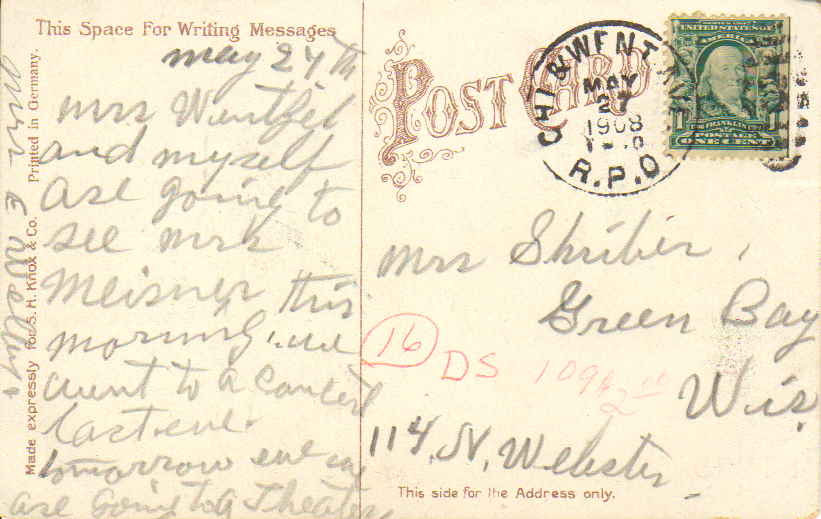 This Space For Writing Messages
may 27th
Mrs
and myself
are going to
see mrs
Meisner this
morning we
went to a concert
last eve.
tomorrow eve we
are going to a Theater,
Mrs E
Made expressly for S. H. Knox & Co. Printed in Germany.
POST CARD
CHI & WENT
MAY
27
1908
R.P.O.
UNITED STATES OF
AMERICA
1
FRANKLIN
POSTAGE
ONE CENT
Mrs Shriber,
Green Bay
Wis
16
DS 109
114 N. Webster
This side for the Address only.